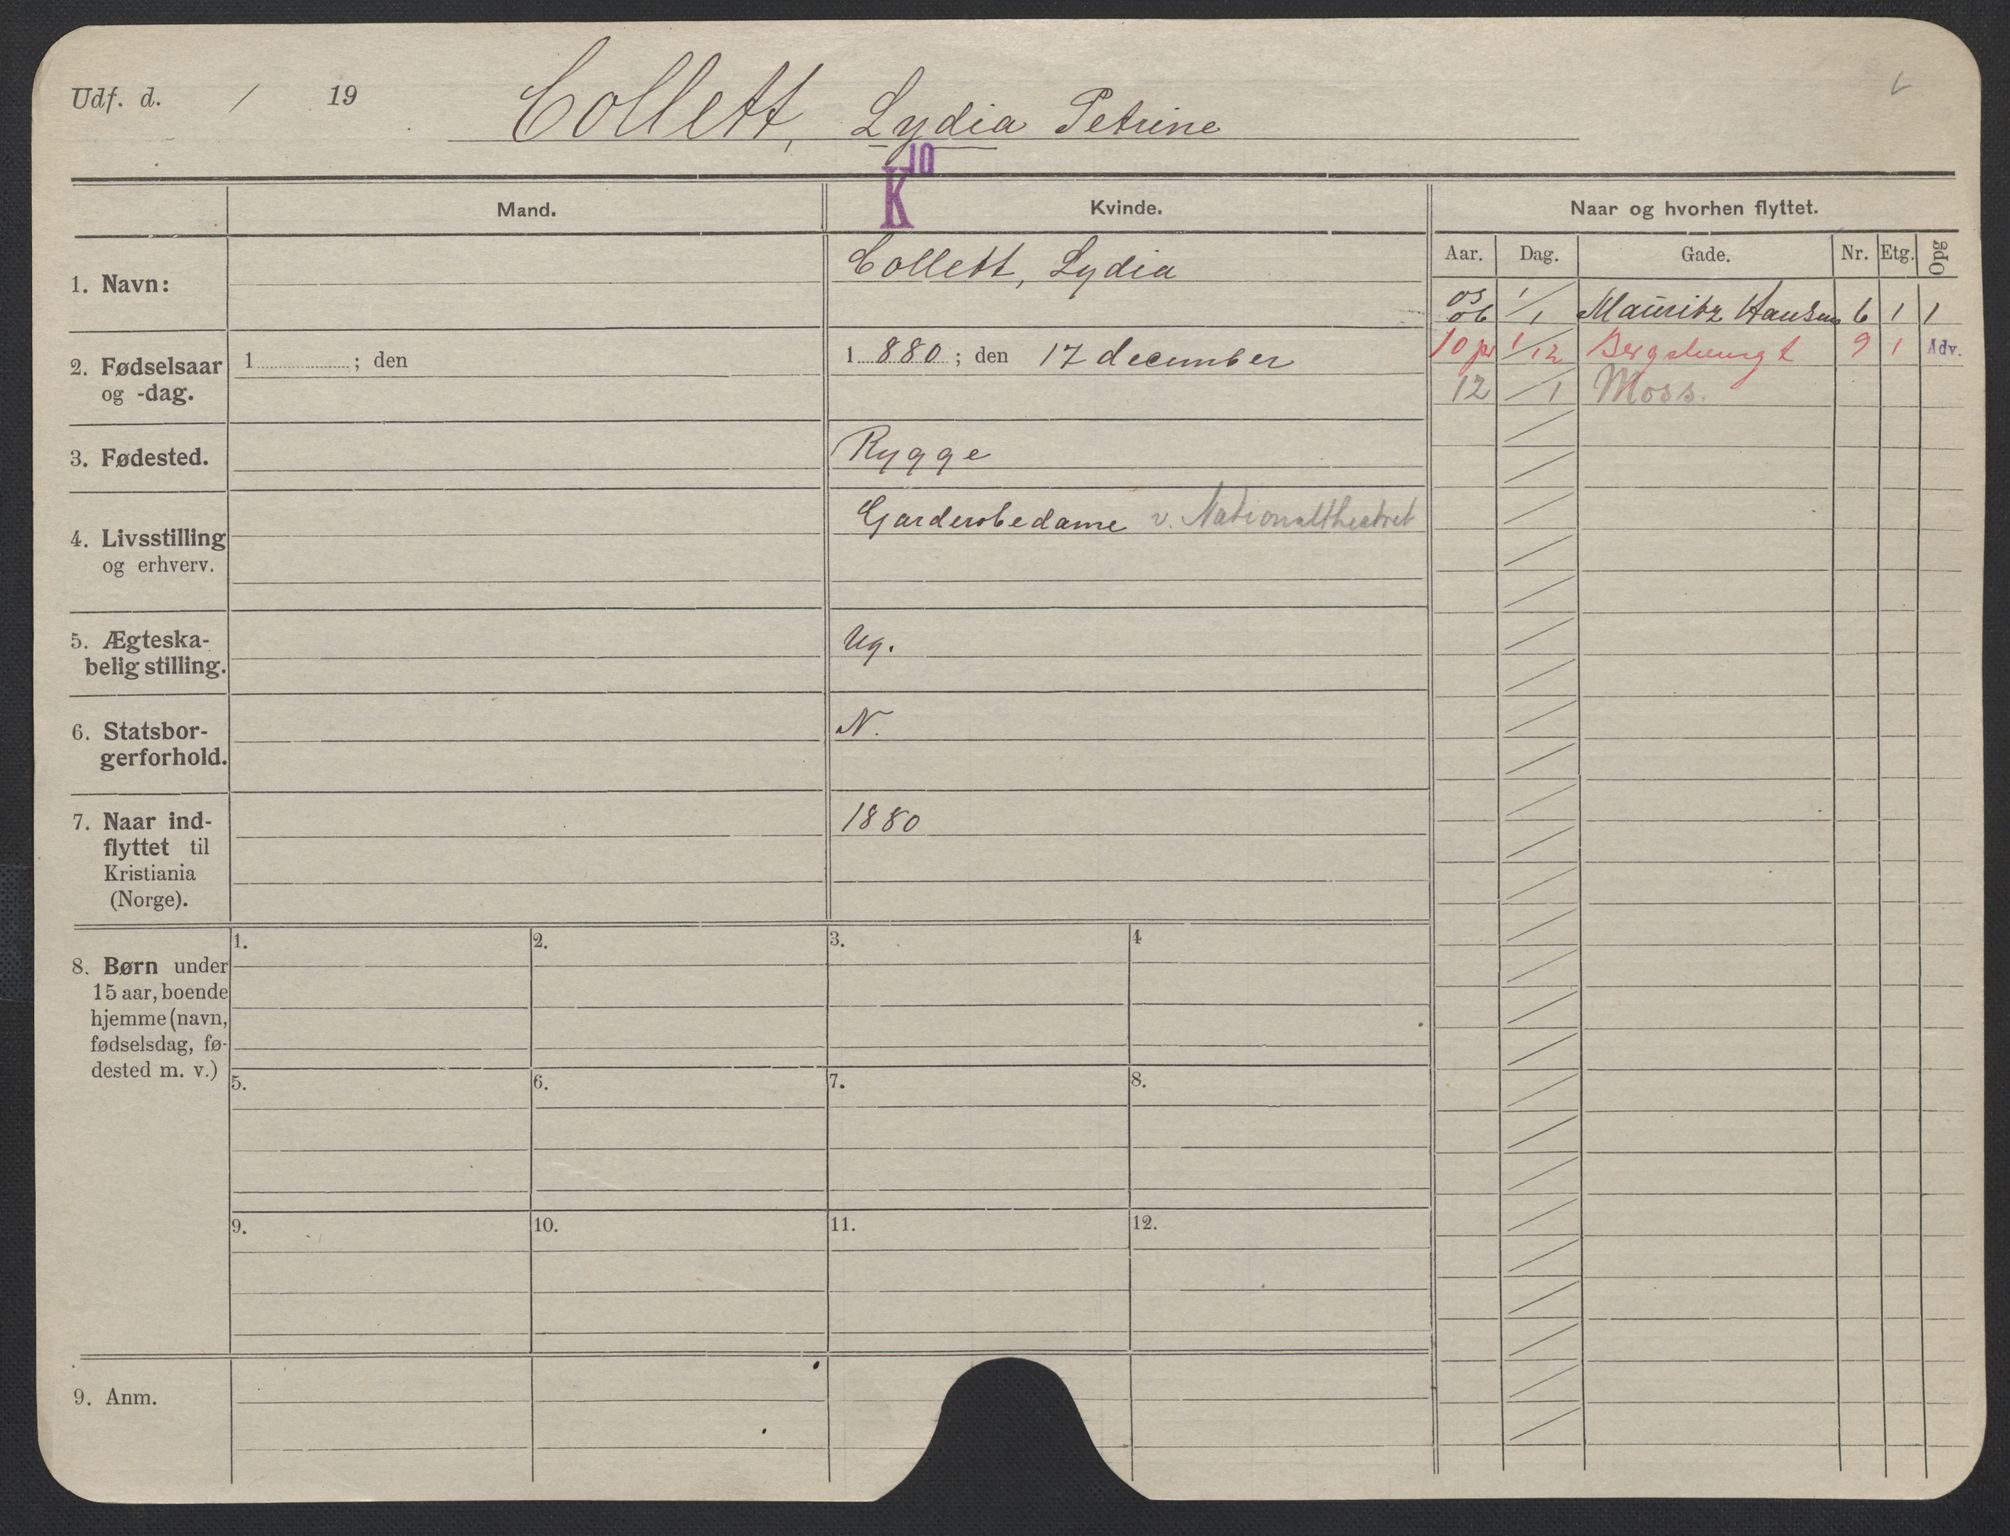 Udf. d. / 19
Collett, Lydia Petrine
K 10
Mand. Kvinde. Naar og hvorhen flyttet.
Aar. Dag. Gade. Nr. Etg. Opg
1. Navn: Collett, Lydia
05
06 1/1 Mauritz Hansens 6 1 1
10 pr 1/12 Bergsliengt 9 1 Adv.
12 / 1 Moss.
2. Fødselsaar
og -dag.
1 ; den
1 880 ; den 17 december
3. Fødested. Rygge
4. Livsstilling
og erhverv.
Garderobedame v. Nationaltheatret
5. Ægteska-
belig stilling.
Ug.
6. Statsbor-
gerforhold.
N.
7. Naar ind-
flyttet til
Kristiania
(Norge).
1880
8. Børn under
15 aar, boende
hjemme (navn,
fødselsdag, fø-
dested m. v.)
1. 2. 3. 4
5. 6. 7. 8.
9. 10. 11. 12.
9. Anm.